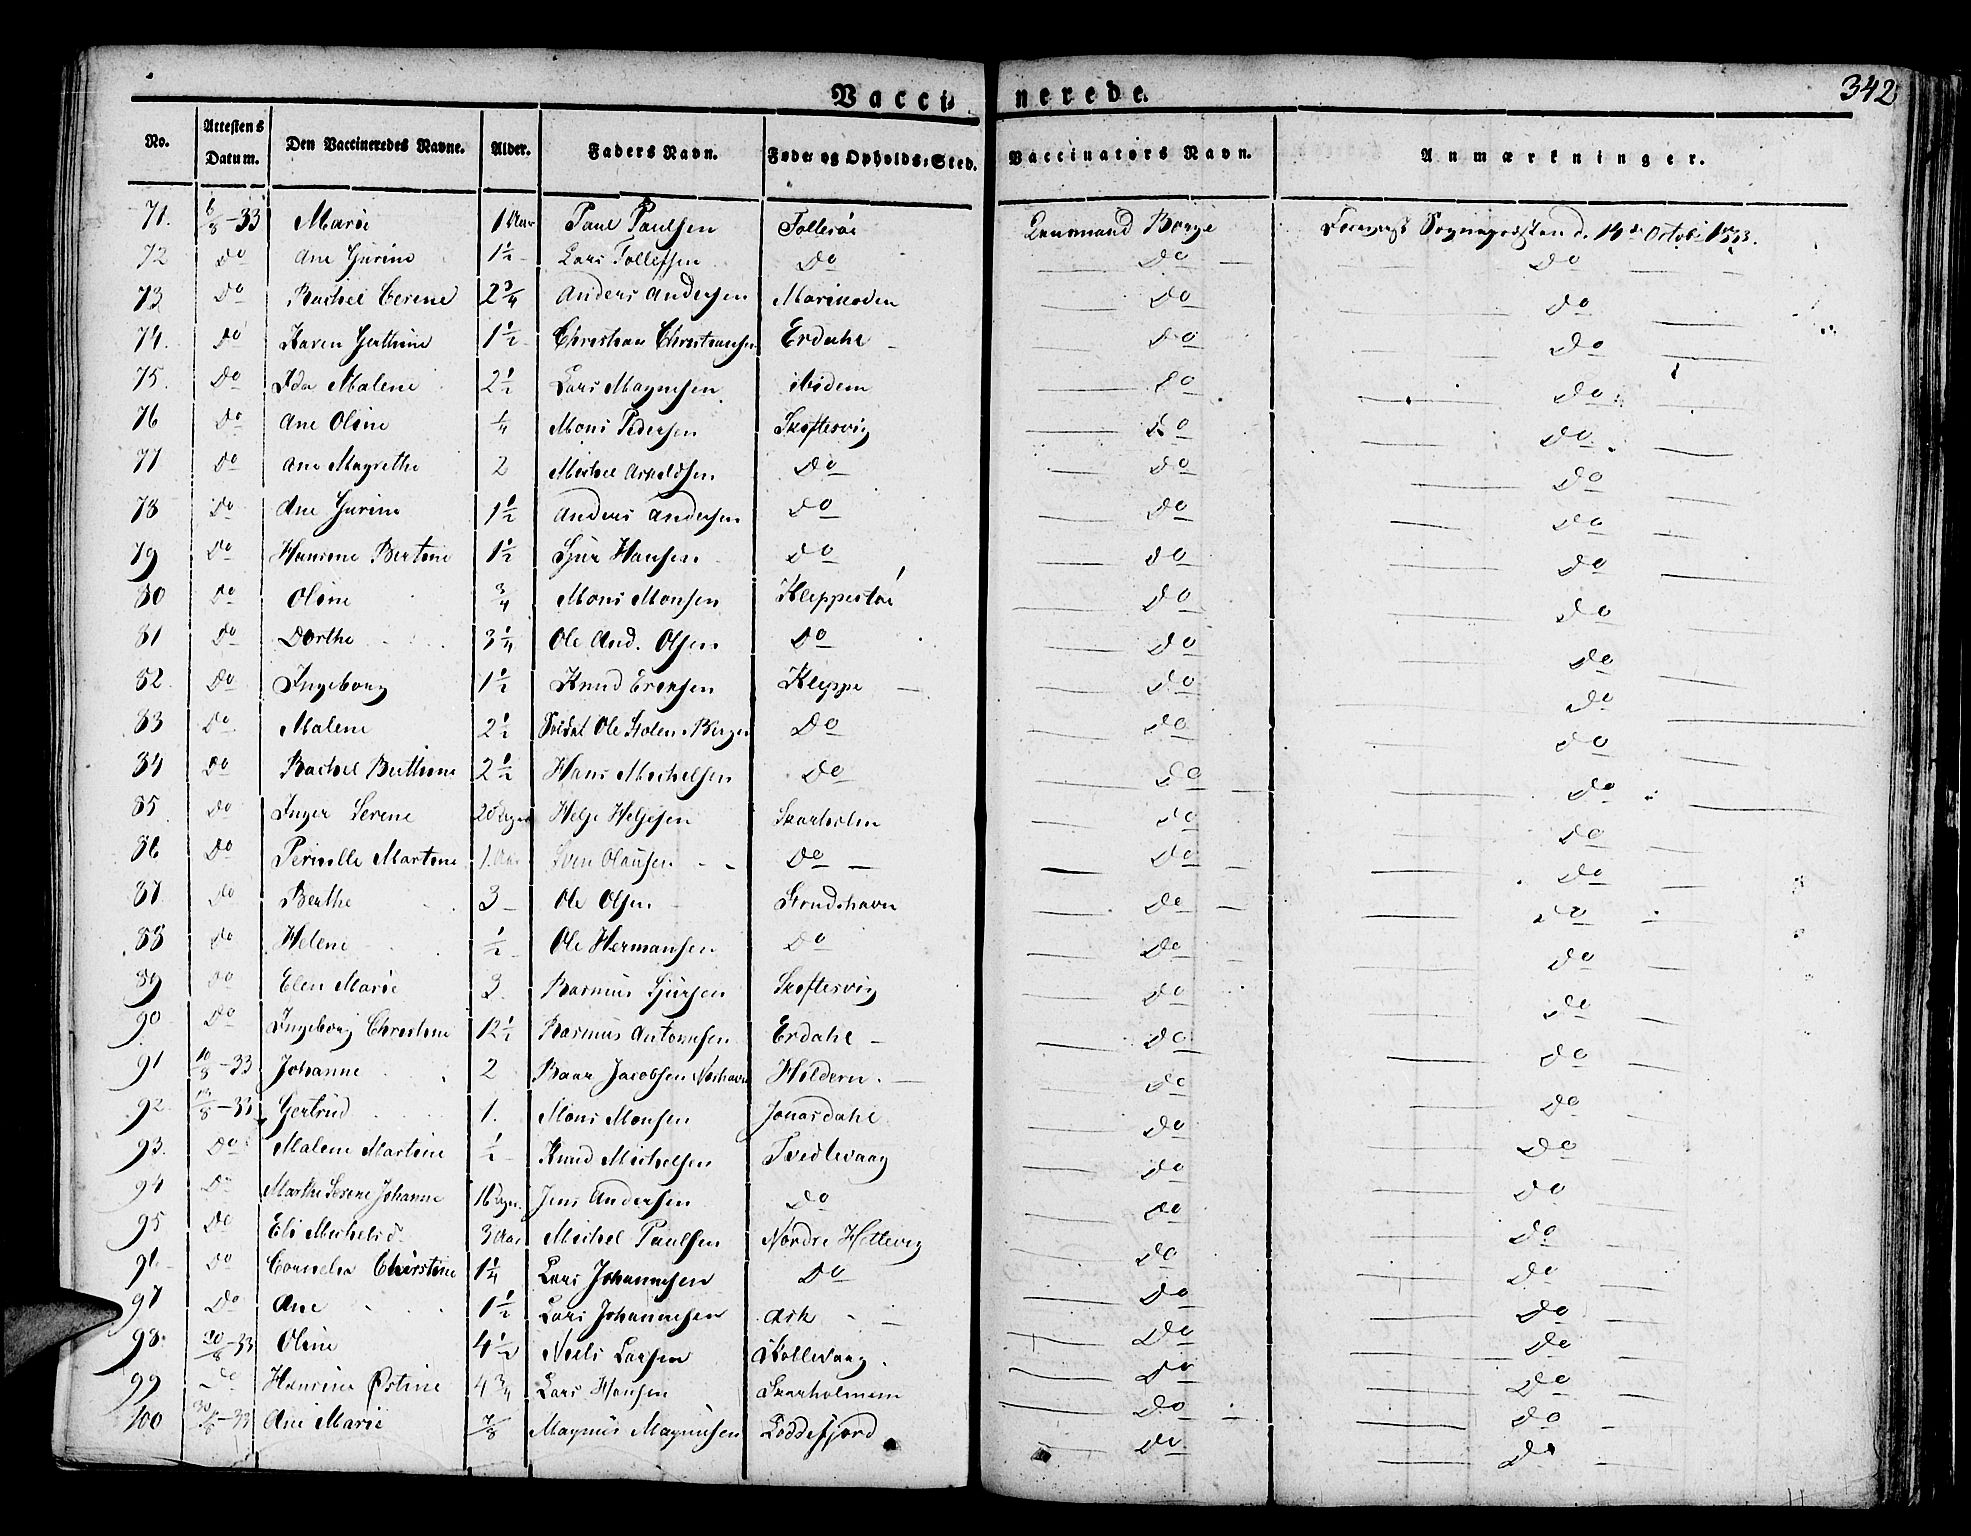 342
Vaccinerede.
No. Attestens Datum. Den Vaccineredes Navne. Alder. Faders Navn. Føde- og Opholds-Sted. Vaccinators Navn. Anmærkninger.
71. 6/8-33 Marie 1 Aar Paul Paulsen Tollesøe Lensmand Borge Sognepræsten d. 14de October 1833.
72 Do Ane Gurine 1½ Lars Tollefsen Do Do Do
73 Do Rachel Serene 2¾ Anders Andersen Marikoven Do Do
74. Do Karen Gurthine 1½ Christian Christiansen Erdahl Do Do
75. Do Ida Malene 2½ Lars Magnesen ibidem Do Do
76 Do Ane Oline ¼ Mons Pedersen Skiftesvig Do Do
77 Do Ane Magrethe 2 Michel Arnoldsen Do Do Do
78 Do Ane Gurine 1½ Anders Andersen Do Do Do
79 Do Hansine Bertine 1½ Sjur Hansen Do Do Do
80 Do Oline ¾ Mons Monsen Kleppestøe Do Do
81 Do Dorthe 3¼ Ole And. Olsen Do Do Do
82. Do Ingeborg 1½ Knud Ericksen Kleppe Do Do
83 Do Malene 2½ Soldat Ole Do Do Do
84 Do Rachel Berthine 2½ Hans Michelsen Do Do Do
85 Do Inger Serene 20 Helje Heljesen Skarholm Do Do
86 Do Pernelle Martine 1. Aar Sven Olausen Do Do Do
87 Do Berthe 3 Ole Olsen Strudshavn Do Do
88 Do Helene ½ Ole Hermansen Do Do Do
89 Do Elen Marie 3 Rasmus Sjursen Skiftesvig Do Do
90 Do Ingeborg Christine 12½ Rasmus Antonesen Erdahl Do Do
91 10/8-33 Johanne 2 Baar Jacobsen Hildern Do Do
92. 12/8-33 Gertrud 1. Mons Monsen Jonasdahl Do Do
93. Do Malene Martine ½ Knud Michelsen Tvedtevaag Do Do
94 Do Marthe Serene Johanne 16 Jens Andersen Do Do Do
95 Do Eli Michelsd. 3 Aar Michel Paulsen Nordre Hettevig Do Do
96. Do Cornelia Christine 1¼ Lars Johannesen Do Do Do
97 Do Ane 1½ Lars Johannesen Ask Do Do
98. 20/8-33 Oline 4½ Niels Larsen Kollevaag. Do Do
99 Do Hansine Østine 4¾ Lars Hansen Skarholmen Do Do
100 30/8-33 Ane Marie 7/8 Magnus Magnusen Loddefjord Do Do